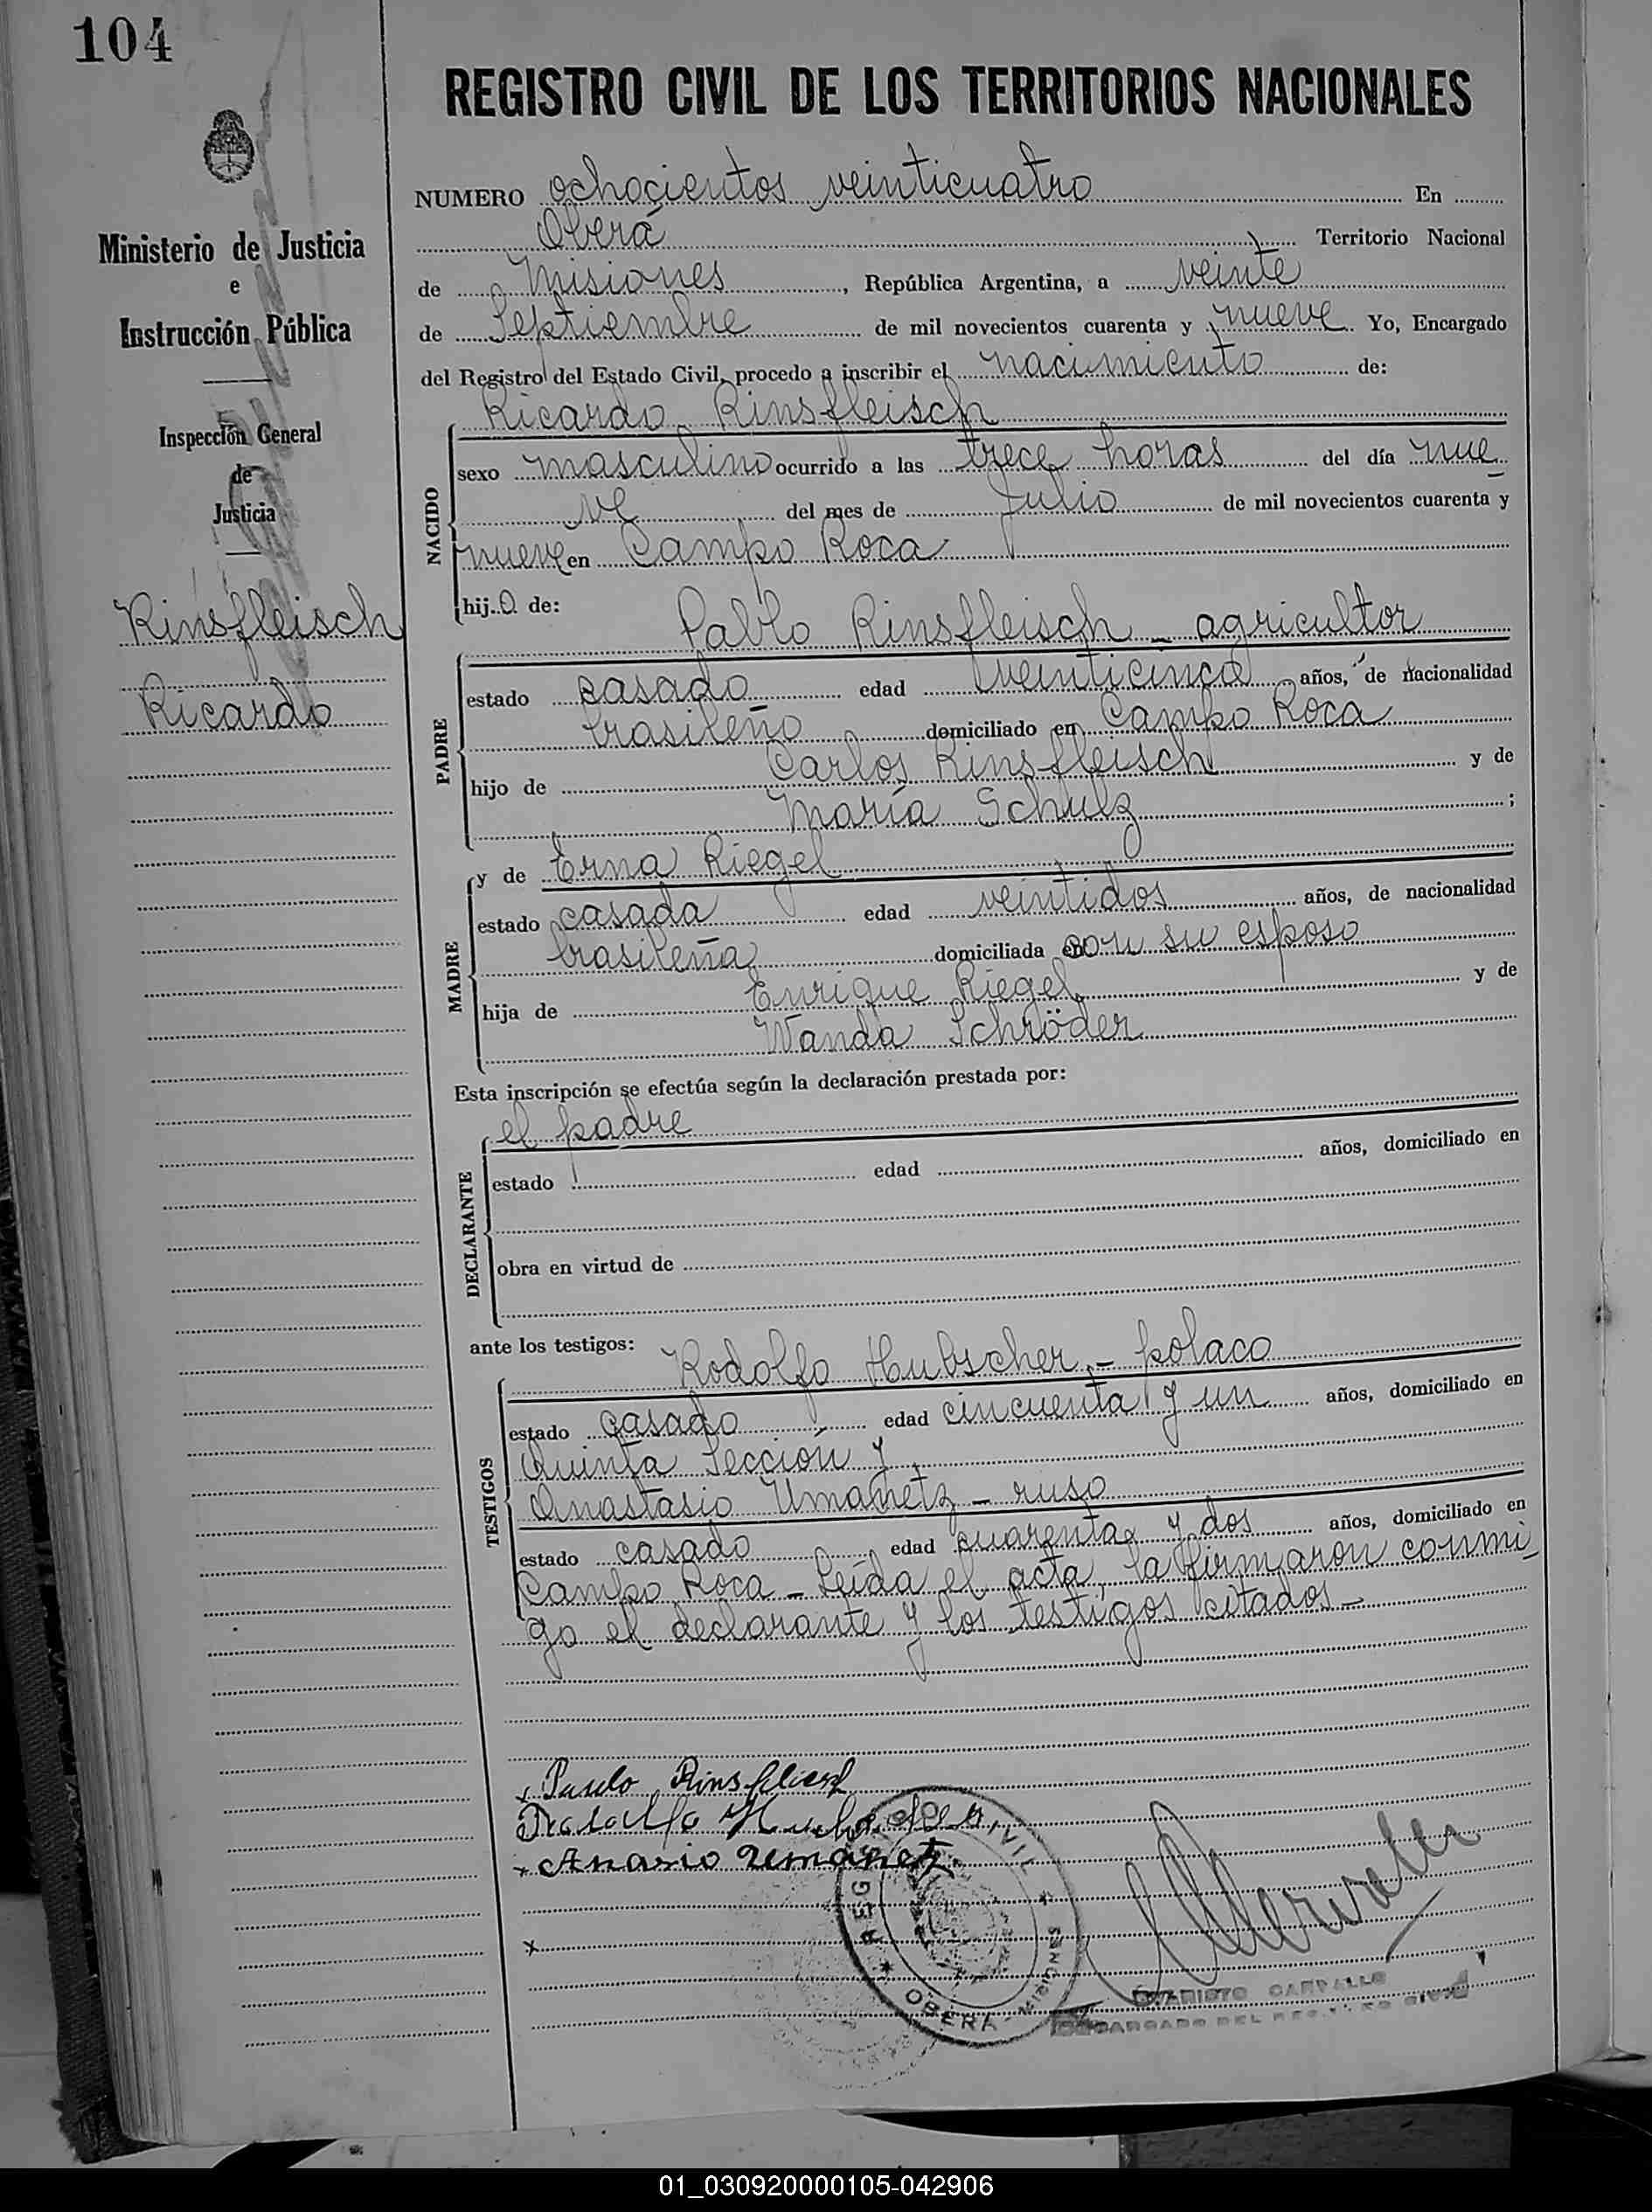 104
REGISTRO CIVIL DE LOS TERRITORIOS NACIONALES
Ministerio de Justicia
e
Instrucción Pública
Inspección General
de
Justicia
Rinsfleisch
Ricardo
NUMERO ochocientos veinticuatro En
Oberá Territorio Nacional
de Misiones, República Argentina, a veinte
de Septiembre de mil novecientos cuarenta y nueve. Yo, Encargado
del Registro del Estado Civil, procedo a inscribir el nacimiento de:
Ricardo Rinsfleisch
NACIDO
sexo masculino ocurrido a las trece horas del día nue
ve del mes de Julio de mil novecientos cuarenta y
nueve en Campo Roca
hij.o de:
Pablo Rinsfleisch - agricultor
PADRE
estado casado edad veinticinco años, de nacionalidad
brasileño domiciliado en Campo Roca
hijo de Carlos Rinsfleisch y de
María Schulz ;
y de Erna Riegel
MADRE
estado casada edad veintidos años, de nacionalidad
brasileña domiciliada en con su esposo
hija de Enrique Riegel y de
Wanda Schröder
Esta inscripción se efectúa según la declaración prestada por:
el padre
DECLARANTE
estado edad años, domiciliado en
obra en virtud de
ante los testigos: Rodolfo Hubscher - polaco
TESTIGOS
estado casado edad cincuenta y un años, domiciliado en
Quinta Sección y
Anastasio Umanetz - ruso
estado casado edad cuarenta y dos años, domiciliado en
Campo Roca - Leída el acta, la firmaron conmi
go el declarante y los testigos citados -
Paulo Rinsfleisch
x
REGISTRO CIVIL
OBERA - MISIONES
EVARISTO CARVALLO
ENCARGADO DEL REGISTRO CIVIL
01_030920000105-042906